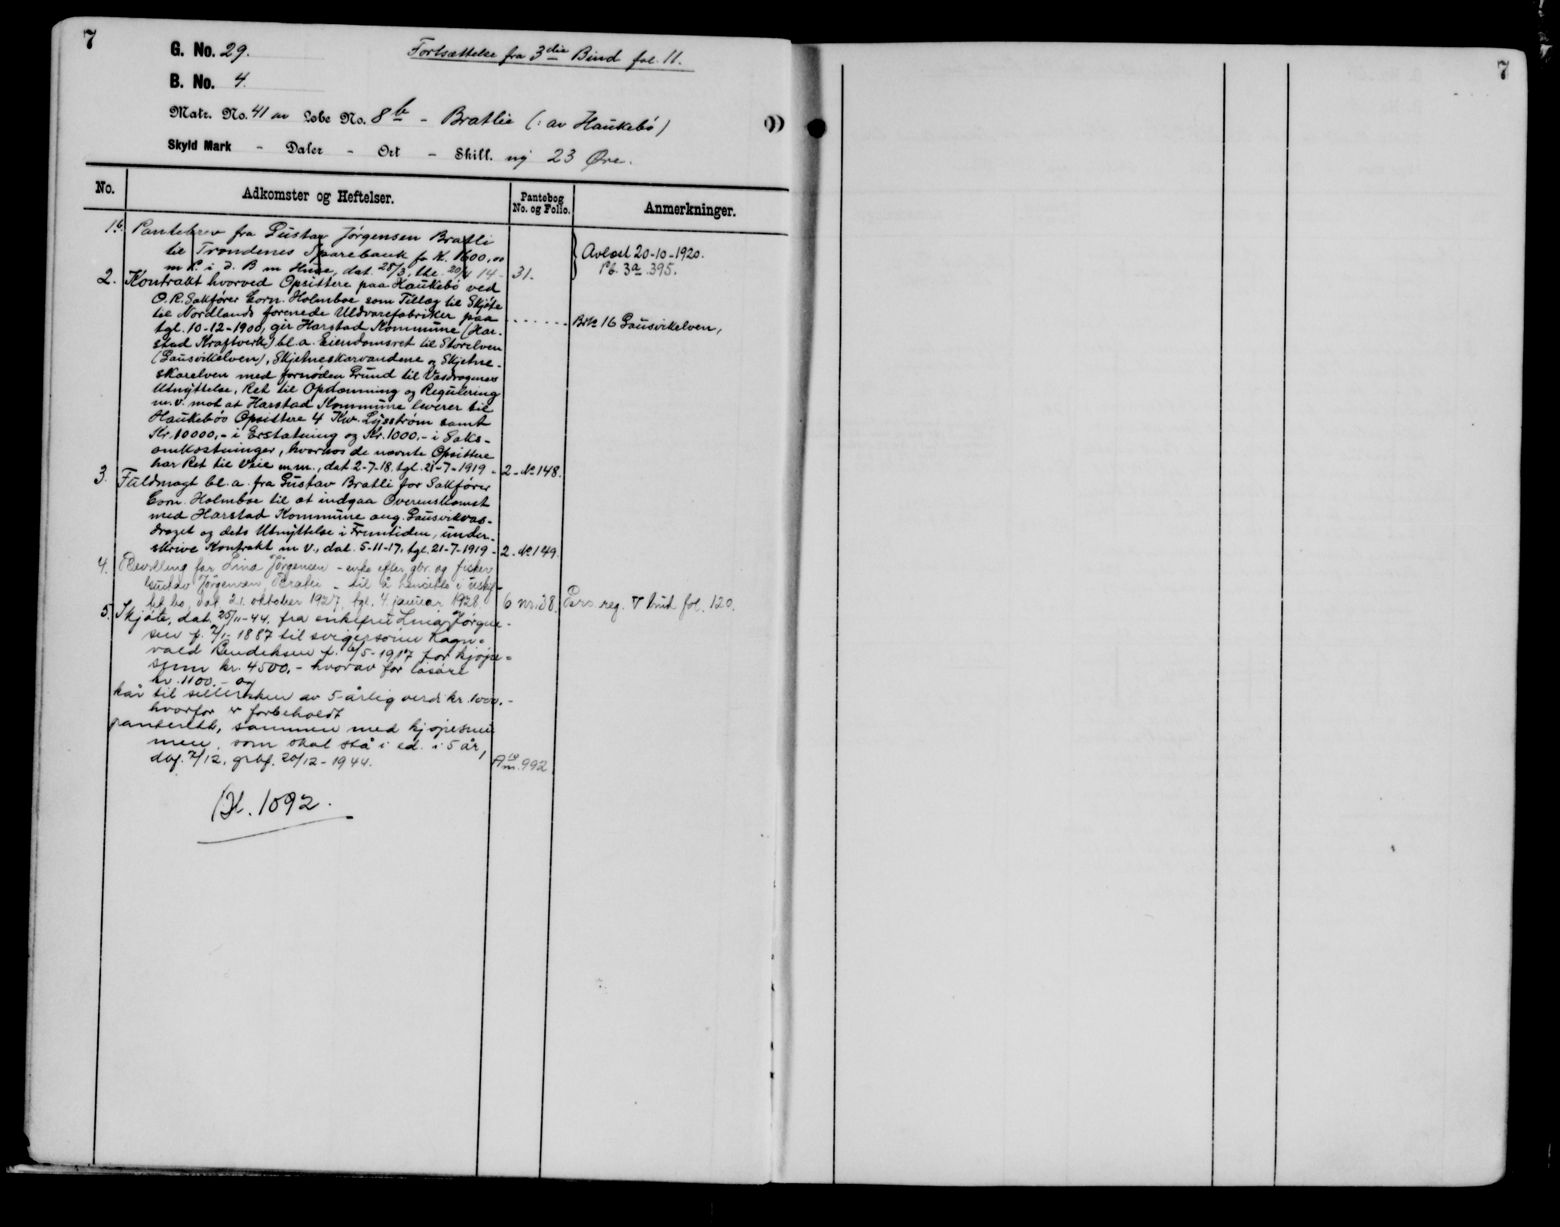 7
G. No. 29. Fortsættelse fra 3die Bind fol. 11.
B. No. 4.
Matr. No. 41 av Løbe No. 8b - Bratlie (: av Haukebø)
Skyld Mark - Daler - Ort - Skill. ny 23 Øre.
No. Adkomster og Heftelser. Pantebog No. og Folio. Anmerkninger.
1b. Pantebrev fra Gustav Jørgensen Bratli
til Trondenes Sparebank for K. 1600,00
m P. i d. B m Huse, dat. 28/3, tle. 20/4 14 - 31.
Avlæst 20-10-1920.
Pb. 3a 395.
2. Kontrakt hvorved Opsittere paa Haukebø ved
O.R. Sakfører Corn. Holmboe som Tillæg til Skjøte
til Nordlands forenede Uldvarefabriker paa
tgl. 10-12-1900, gir Harstad Kommune (Har-
stad Kraftverk) bl.a. Eiendomsret til Storelven
(Gausvikelven), Skjetneskarvandene og Skjetne-
skarelven med fornøden Grund til Vasdragenes
Utnyttelse, Ret til Opdæmning og Regulering
m.v. mot at Harstad Kommune leverer til
Haukebøs Opsittere 4 Kw. Lysstrøm samt
Kr. 10000,- i Erstatning og Kr. 1000,- i Saks-
omkostninger, hvorhos de nævnte Opsittere
har Ret til Veie m.m., dat 2-7-18. tgl. 21-7-1919 - 2 - No 148.
Brk 16 Gausvikelven,
3. Fuldmagt bl.a. fra Gustav Bratli for Sakfører
Corn. Holmboe til at indgaa Overenskomst
med Harstad Kommune ang. Gausvikvas-
draget og dets Utnyttelse i Fremtiden, under-
skrive Kontrakt m v., dat. 5-11-17, tgl. 21-7-1919 - 2 - No 149.
4. Bevilling for Lina Jørgensen - enke efter gbr. og fisker
Gustav Jørgensen Bratli - til å hensitte i uskif-
tet bo, dat. 21. oktober 1927, tgl. 4 januar 1928. 6 nr. 28. Pers. reg. V bind fol. 120.
5. Skjøte, dat. 25/11-44, fra enkefru Lina Jørgen-
sen f. 7/1-1887 til svigersønn Ragn-
vald Bendiksen f. 6/5-1917 for kjøpe-
sum kr. 4500,- hvorav for løsøre
kr. 1100.- og
kår til selgersken av 5-årlig verdi kr. 1000.-
hvorfor er forbeholdt
panterett, sammen med kjøpesum
men, som skal stå i ed. i 5 år,
dbf. 7/12, grbf. 20/12-1944. 992
Bl. 1092.
7